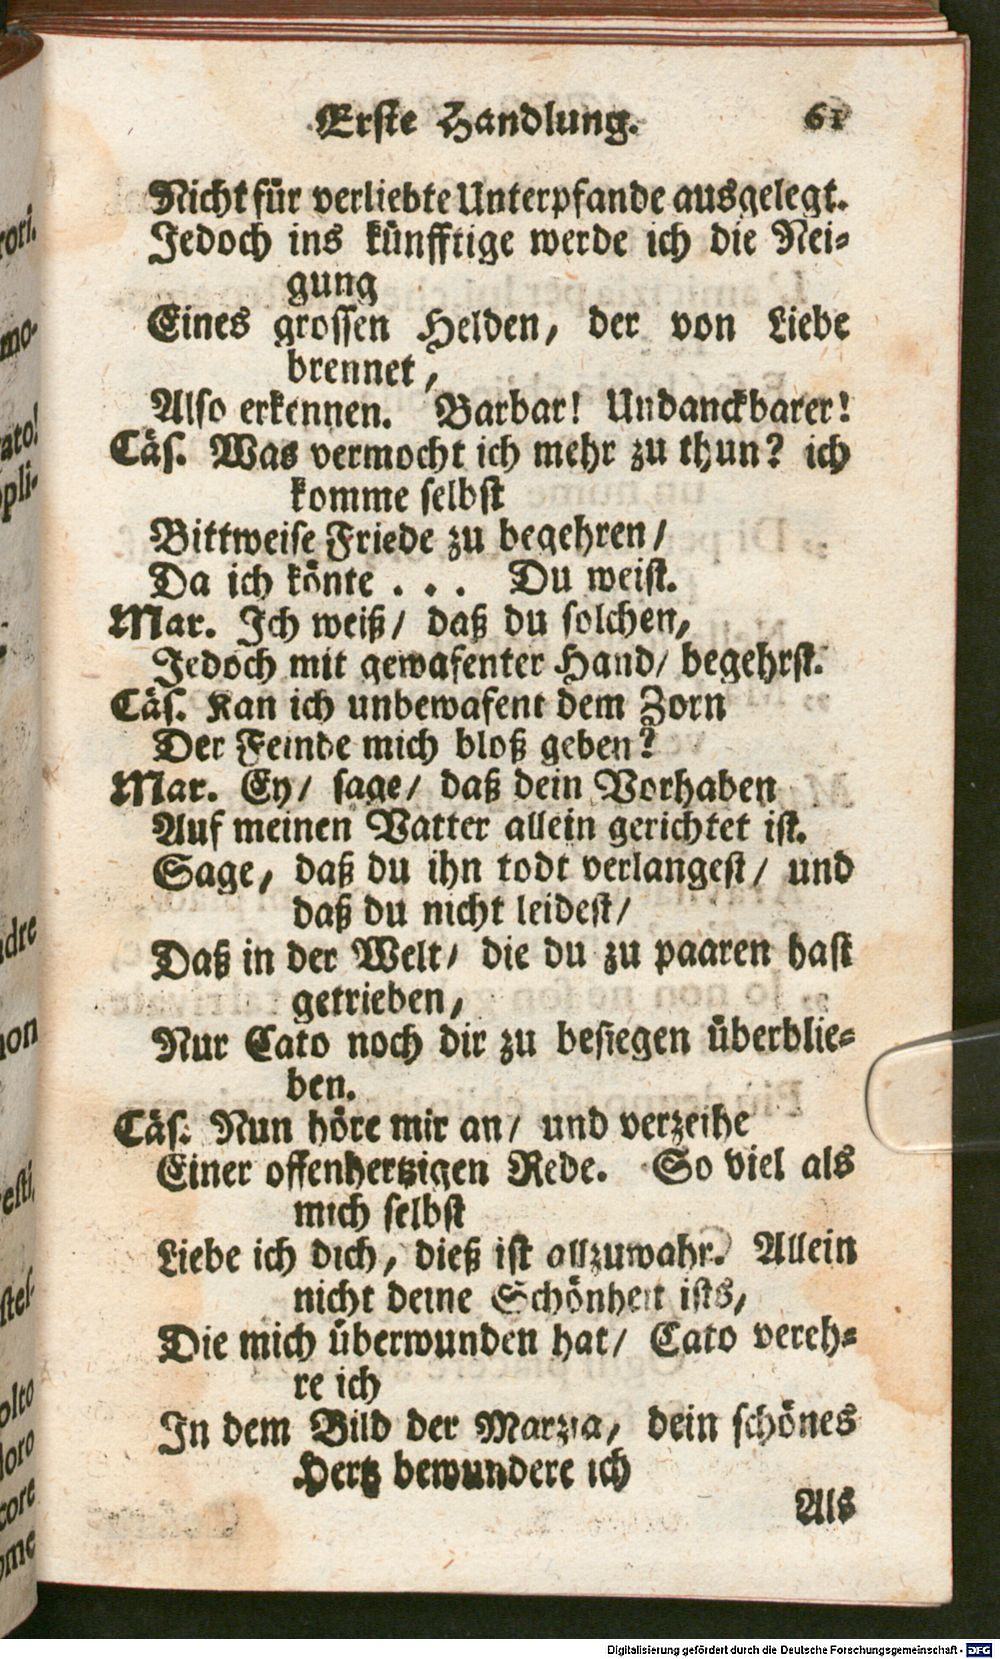 Erste Handlung. 61
Nicht für verliebte Unterpfande ausgelegt.
Jedoch ins künfftige werde ich die Nei-
gung
Eines grossen Helden, der von Liebe
brennet,
Also erkennen. Barbar! Undanckbarer!
Cäs. Was vermocht ich mehr zu thun? ich
komme selbst
Bittweise Friede zu begehren/
Da ich könte . . . Du weist.
Mar. Ich weiß/ daß du solchen,
Jedoch mit gewafenter Hand/ begehrst.
Cäs. Kan ich unbewafent dem Zorn
Der Feinde mich bloß geben?
Mar. Ey/ sage/ daß dein Vorhaben
Auf meinen Vatter allein gerichtet ist.
Sage, daß du ihn todt verlangest/ und
daß du nicht leidest/
Daß in der Welt/ die du zu paaren hast
getrieben,
Nur Cato noch dir zu besiegen überblie-
ben.
Cäs. Nun höre mir an/ und verzeihe
Einer offenhertzigen Rede. So viel als
mich selbst
Liebe ich dich, dieß ist allzuwahr. Allein
nicht deine Schönheit ists,
Die mich überwunden hat/ Cato vereh-
re ich
In dem Bild der Marzia, dein schönes
Hertz bewundere ich
Als
rori.
mo-
rato!
ppli-
adre
non
esti,
stel-
olto
loro
core
ome
Digitalisierung gefördert durch die Deutsche Forschungsgemeinschaft - DFG